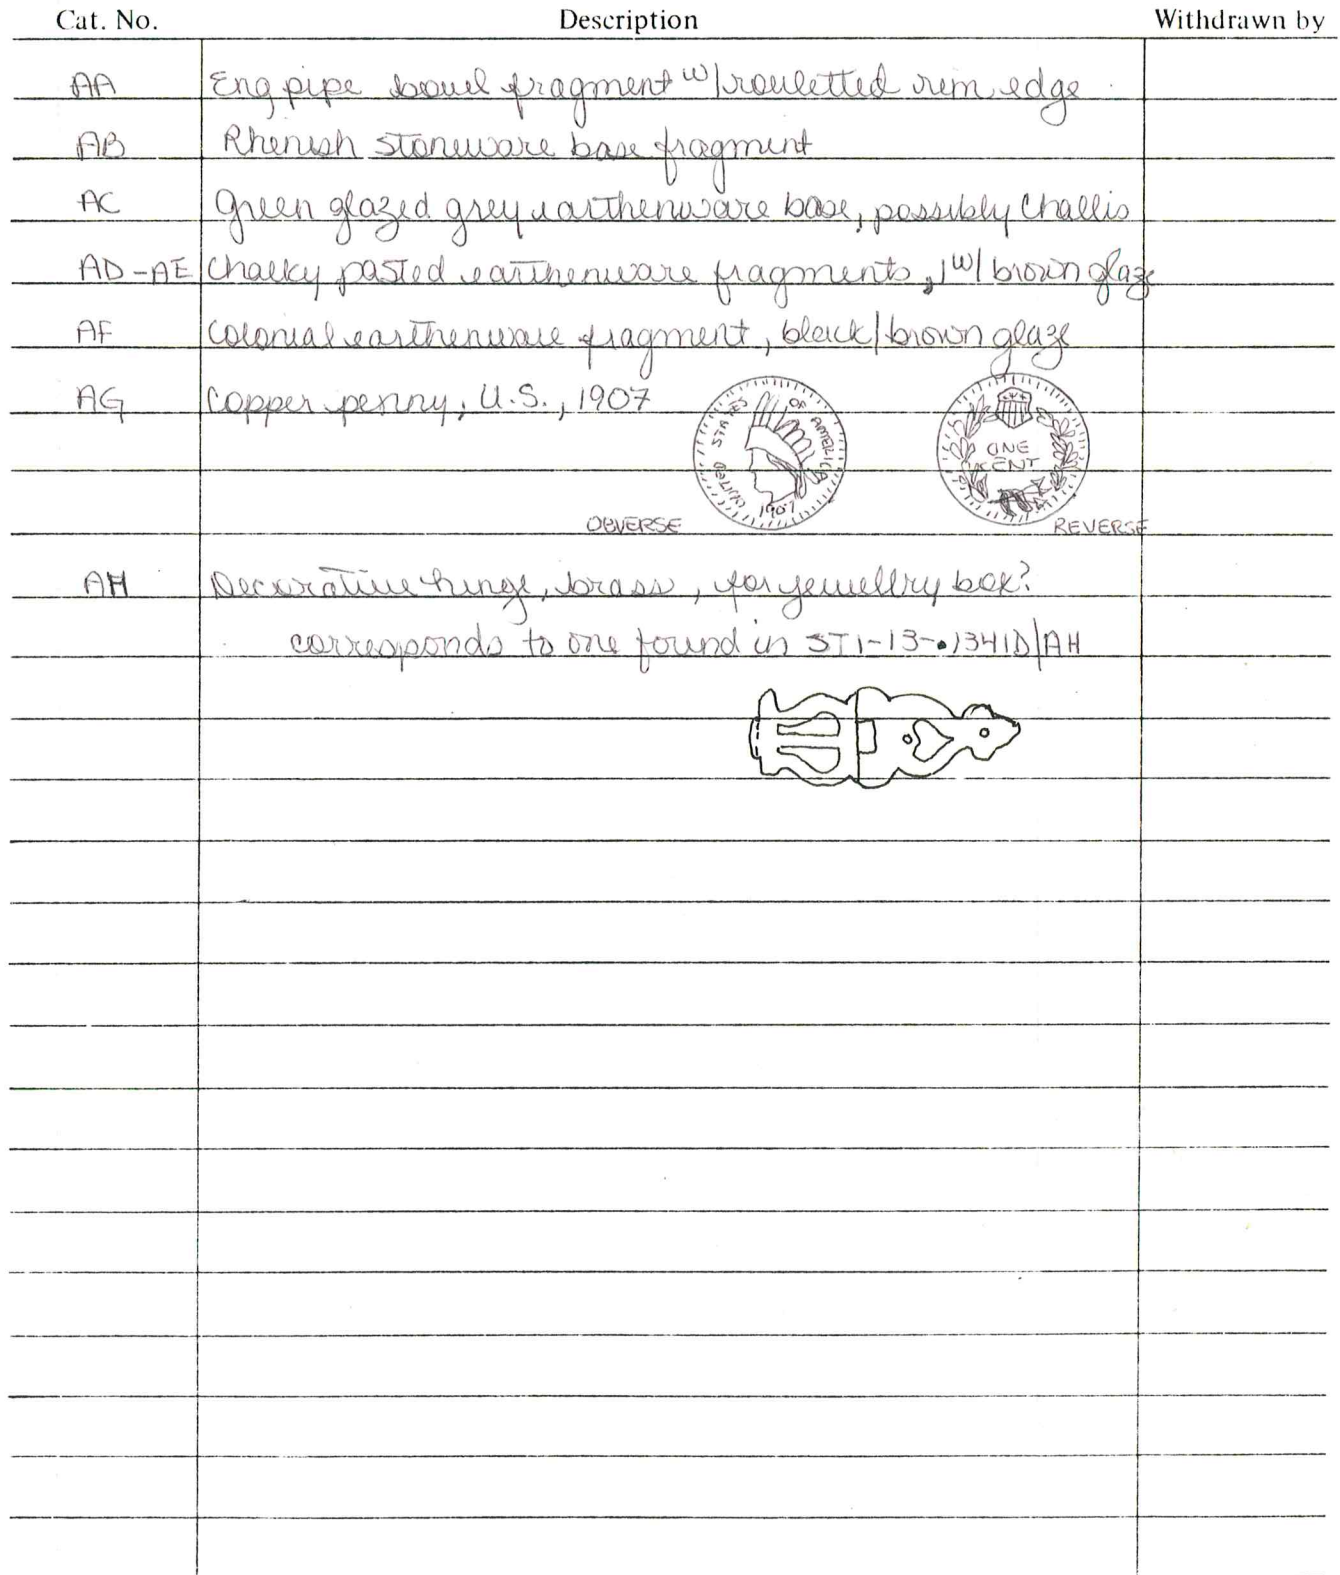 Cat. No. Description Withdrawn by
AA Eng pipe bowl fragment w/ rouletted rim edge
AB Rhenish stoneware base fragment
AC Green glazed grey earthenware base, possibly Challis
AD-AE Chalky pasted earthenware fragments, 1 w/ brown glaze
AF Colonial earthenware fragment, black/brown glaze
AG Copper penny, U.S., 1907
UNITED STATES OF AMERICA
1907
ONE
CENT
OBVERSE REVERSE
AH Decorative hinge, brass, for jewellry box?
corresponds to one found in ST1-13-1341D/AH